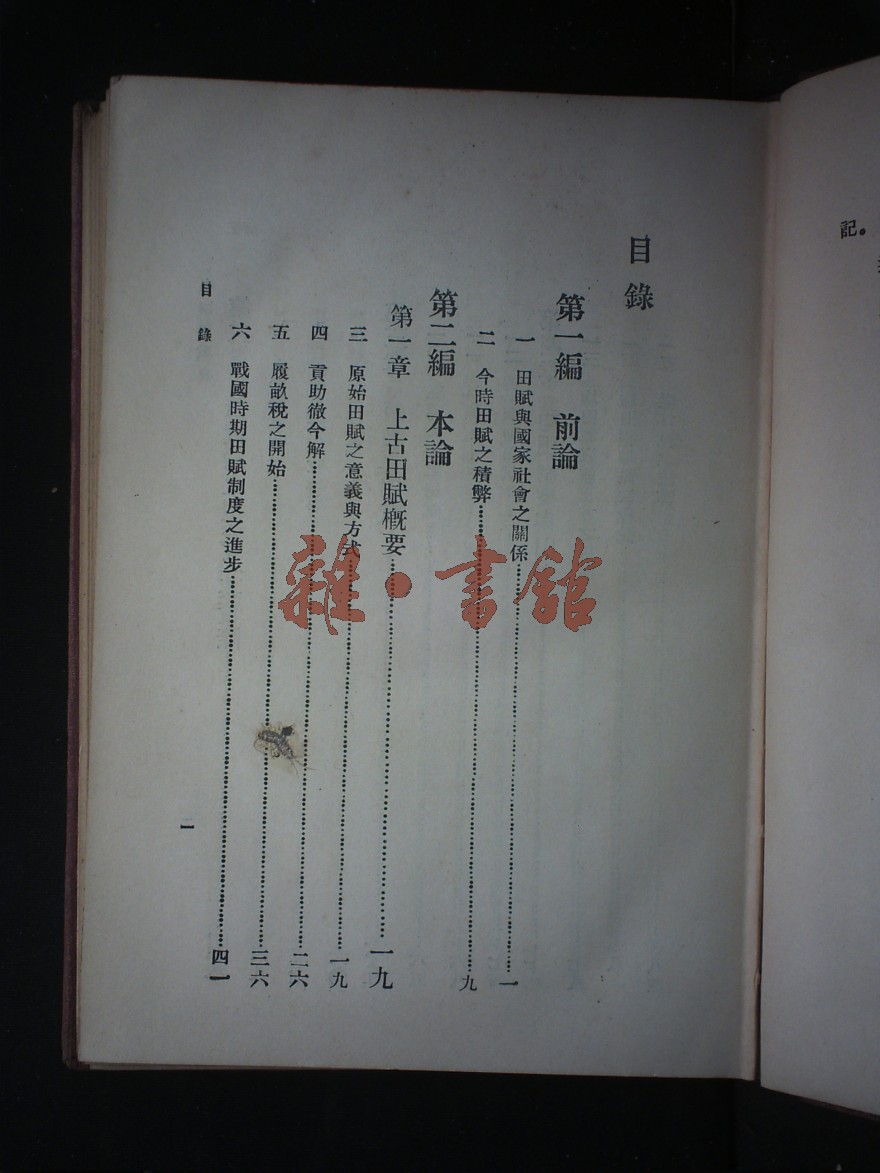 記。
目錄
第一編　前論
一　田賦與國家社會之關係……一
二　今時田賦之積弊……九
第二編　本論
第一章　上古田賦概要……一九
三　原始田賦之意義與方式……一九
四　貢助徹今解……二六
五　履畝稅之開始……三六
六　戰國時期田賦制度之進步……四一
目錄
一
雜·書館